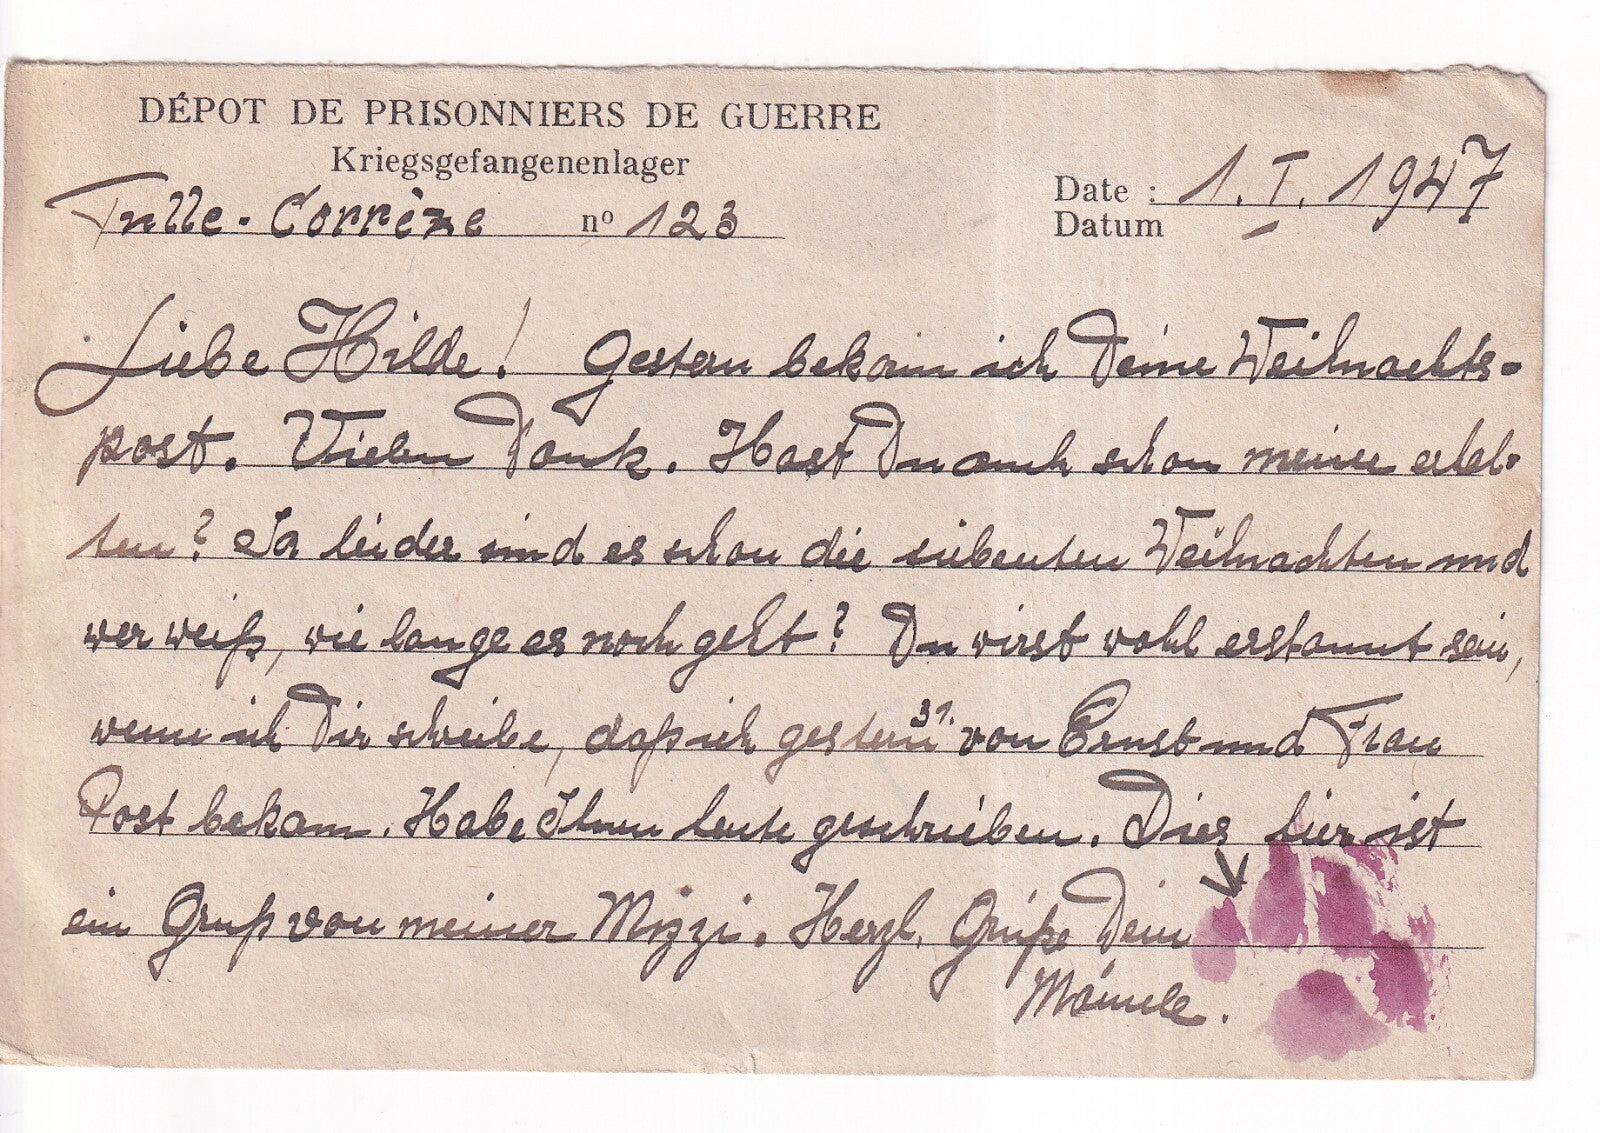 DÉPOT DE PRISONNIERS DE GUERRE
Kriegsgefangenenlager
Tulle - Corrèze nº 123
Date : 1. I. 1947
Datum
Liebe Hilde! Gestern bekam ich Deine Weihnachts-
post. Vielen Dank. Hast Du auch schon meine erhal-
ten? Ja leider sind es schon die siebenten Weihnachten und
wer weiß, wie lange es noch geht? Du wirst wohl erstaunt sein,
wenn ich Dir schreibe, daß ich gestern 31. von Ernst und Frau
Post bekam. Habe Ihnen heute geschrieben. Dies hier ist
ein Gruß von meiner Mizzi. Herzl. Grüße Dein